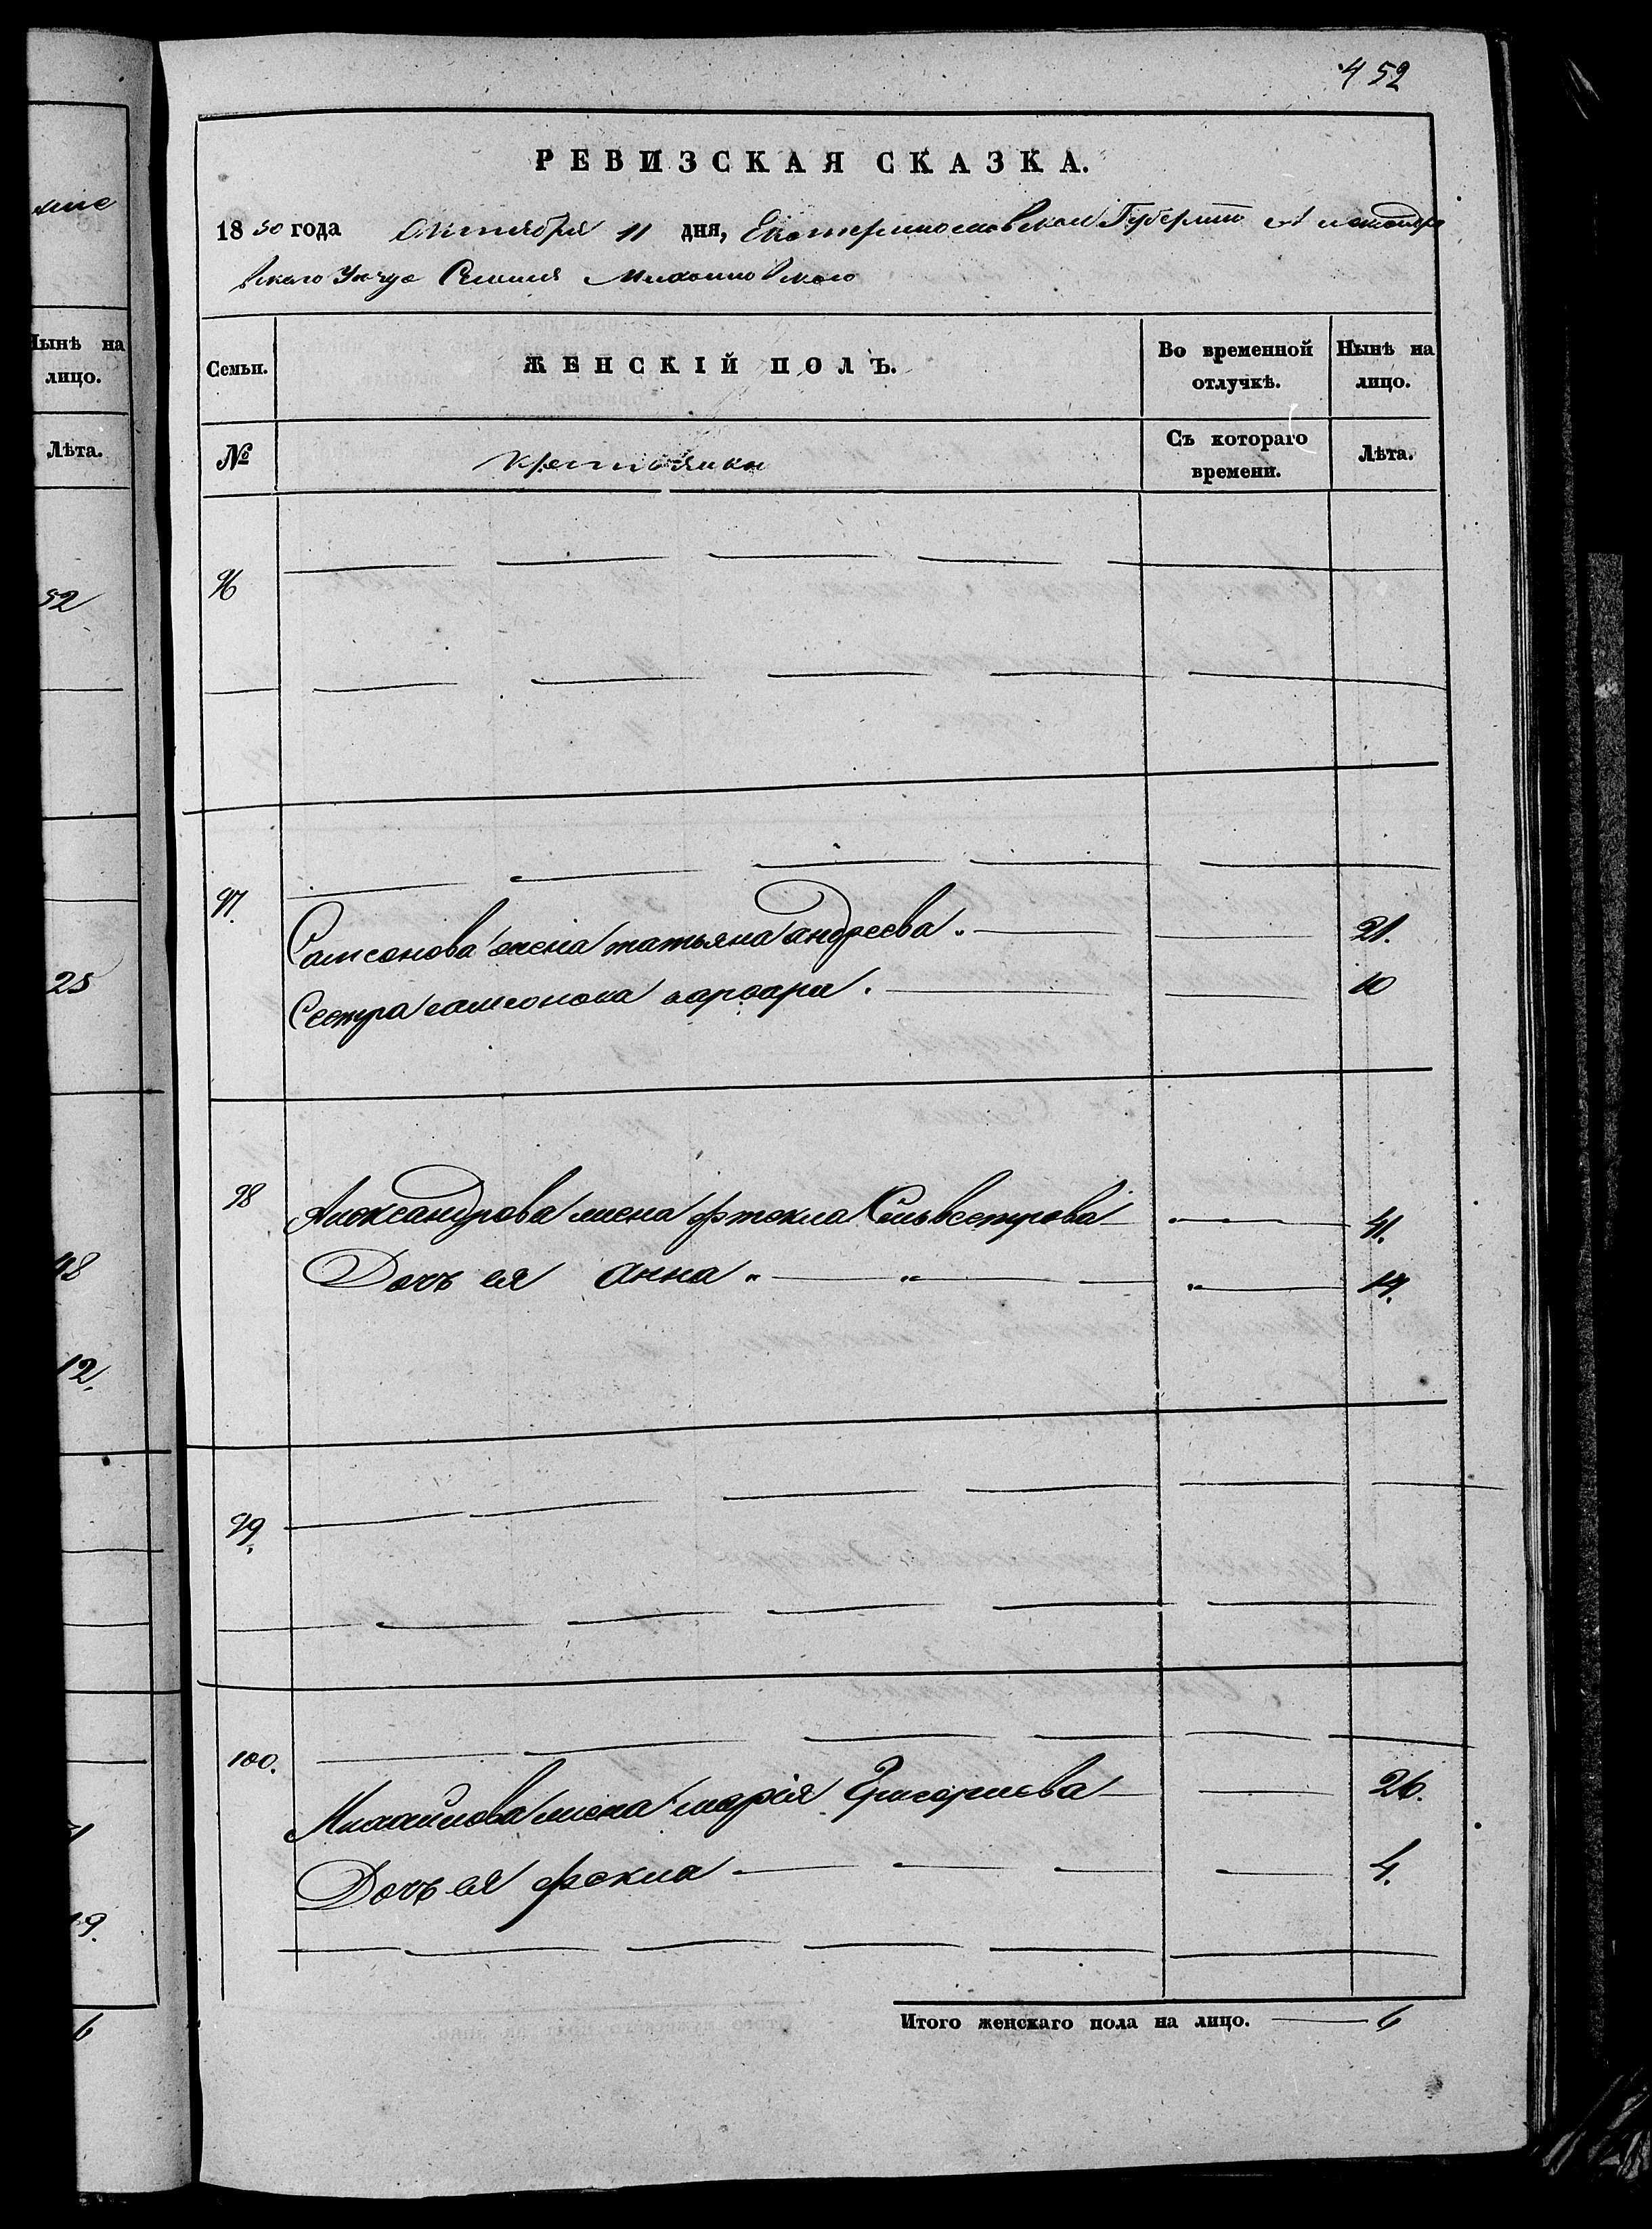 мие
Нынѣ на
лицо.
Лѣта.
52
25
48
12.
19.
6
452
РЕВИЗСКАЯ СКАЗКА.
1850 года Октября 11 дня, Екатеринославской Губерніи Александро
вскаго Уѣзда Селенія
ЖЕНСКІЙ ПОЛЪ.
Семьи.
Во временной
отлучкѣ.
Нынѣ на
лицо.
№
крестьянки
Съ котораго
времени.
Лѣта.
96
97.
Самсонова жена татьяна андреева. 21.
Сестра самсонова варвара. 10
98 Александрова жена фтекла Сильвестрова 41.
Дочь ея анна 14.
99.
100.
Михайлова жена марія Григориева 26.
Дочь ея фекла 4.
Итого женскаго пола на лицо. 6